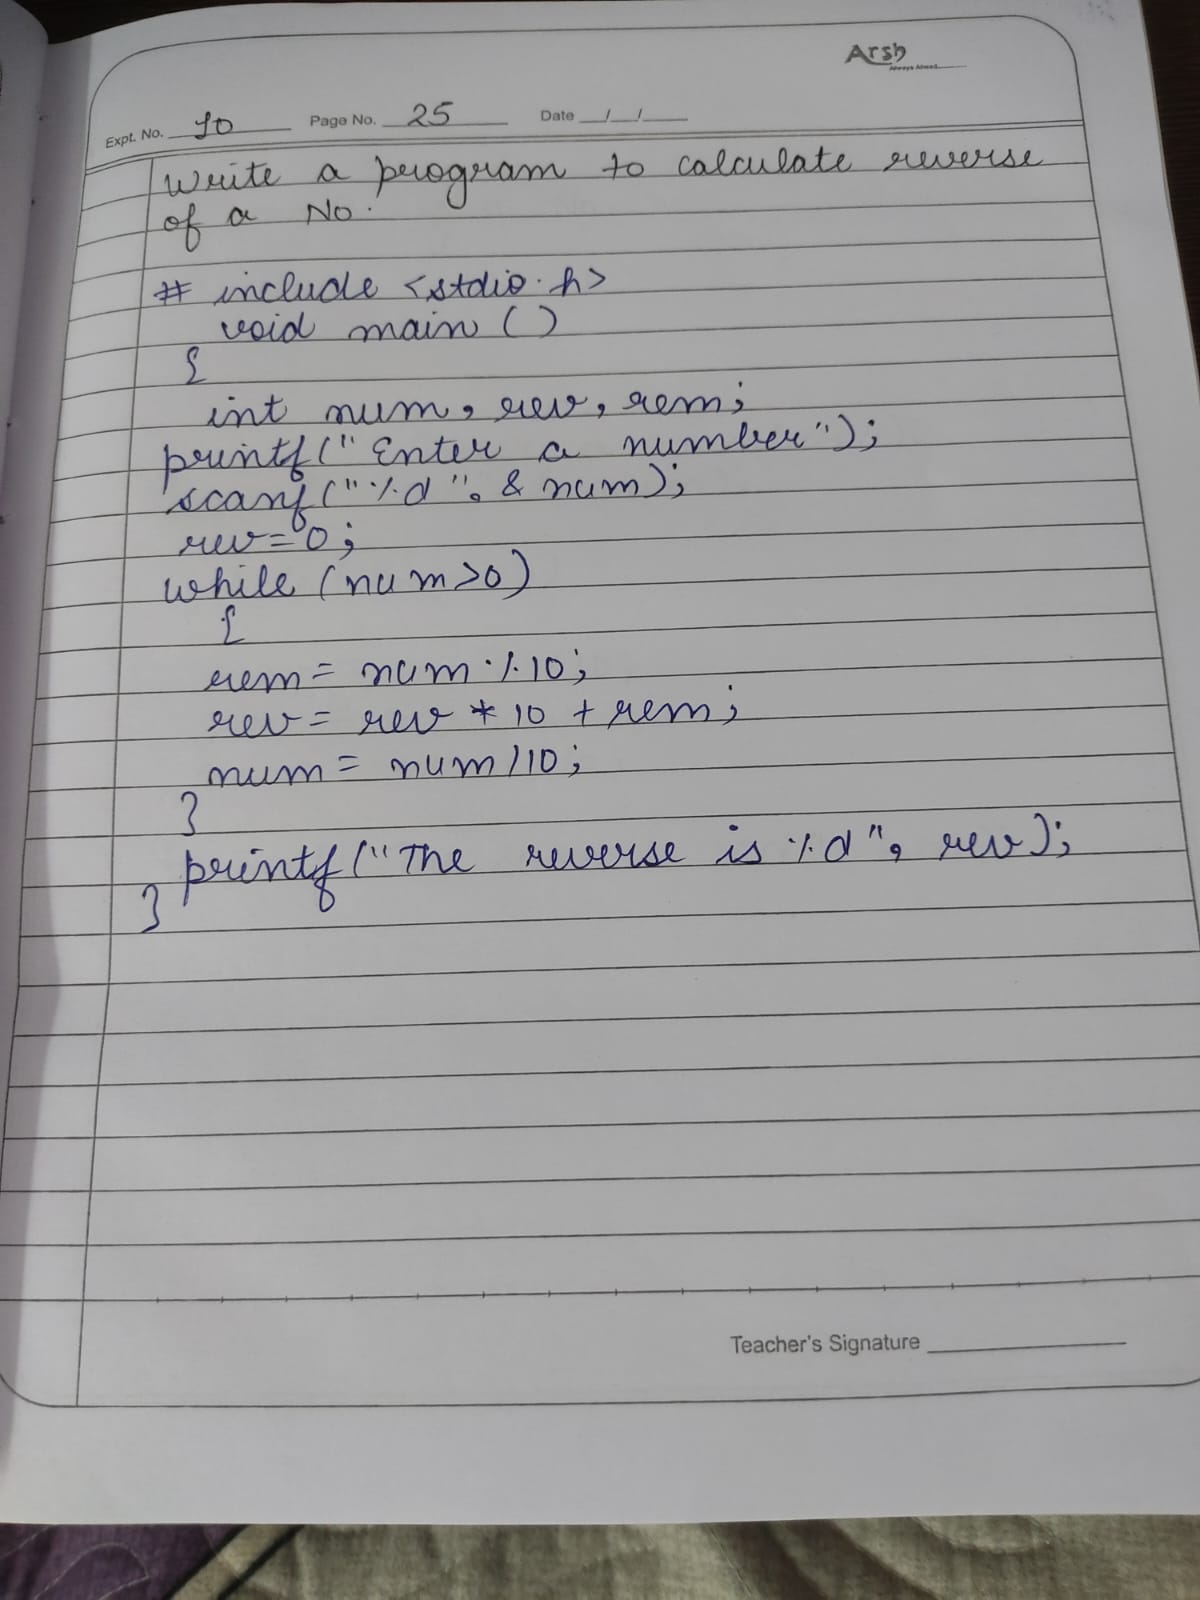 Arsh
Always Ahead...
Expt. No. 10 Page No. 25 Date _/_/_
Write a program to calculate reverse
of a No.
# include <stdio.h>
void main ()
{
int num, rev, rem;
printf("Enter a number");
scanf("%d", & num);
rev=0;
while (num>0)
{
rem = num % 10;
rev = rev * 10 + rem;
num = num/10;
}
printf("The reverse is %d", rev);
}
Teacher's Signature